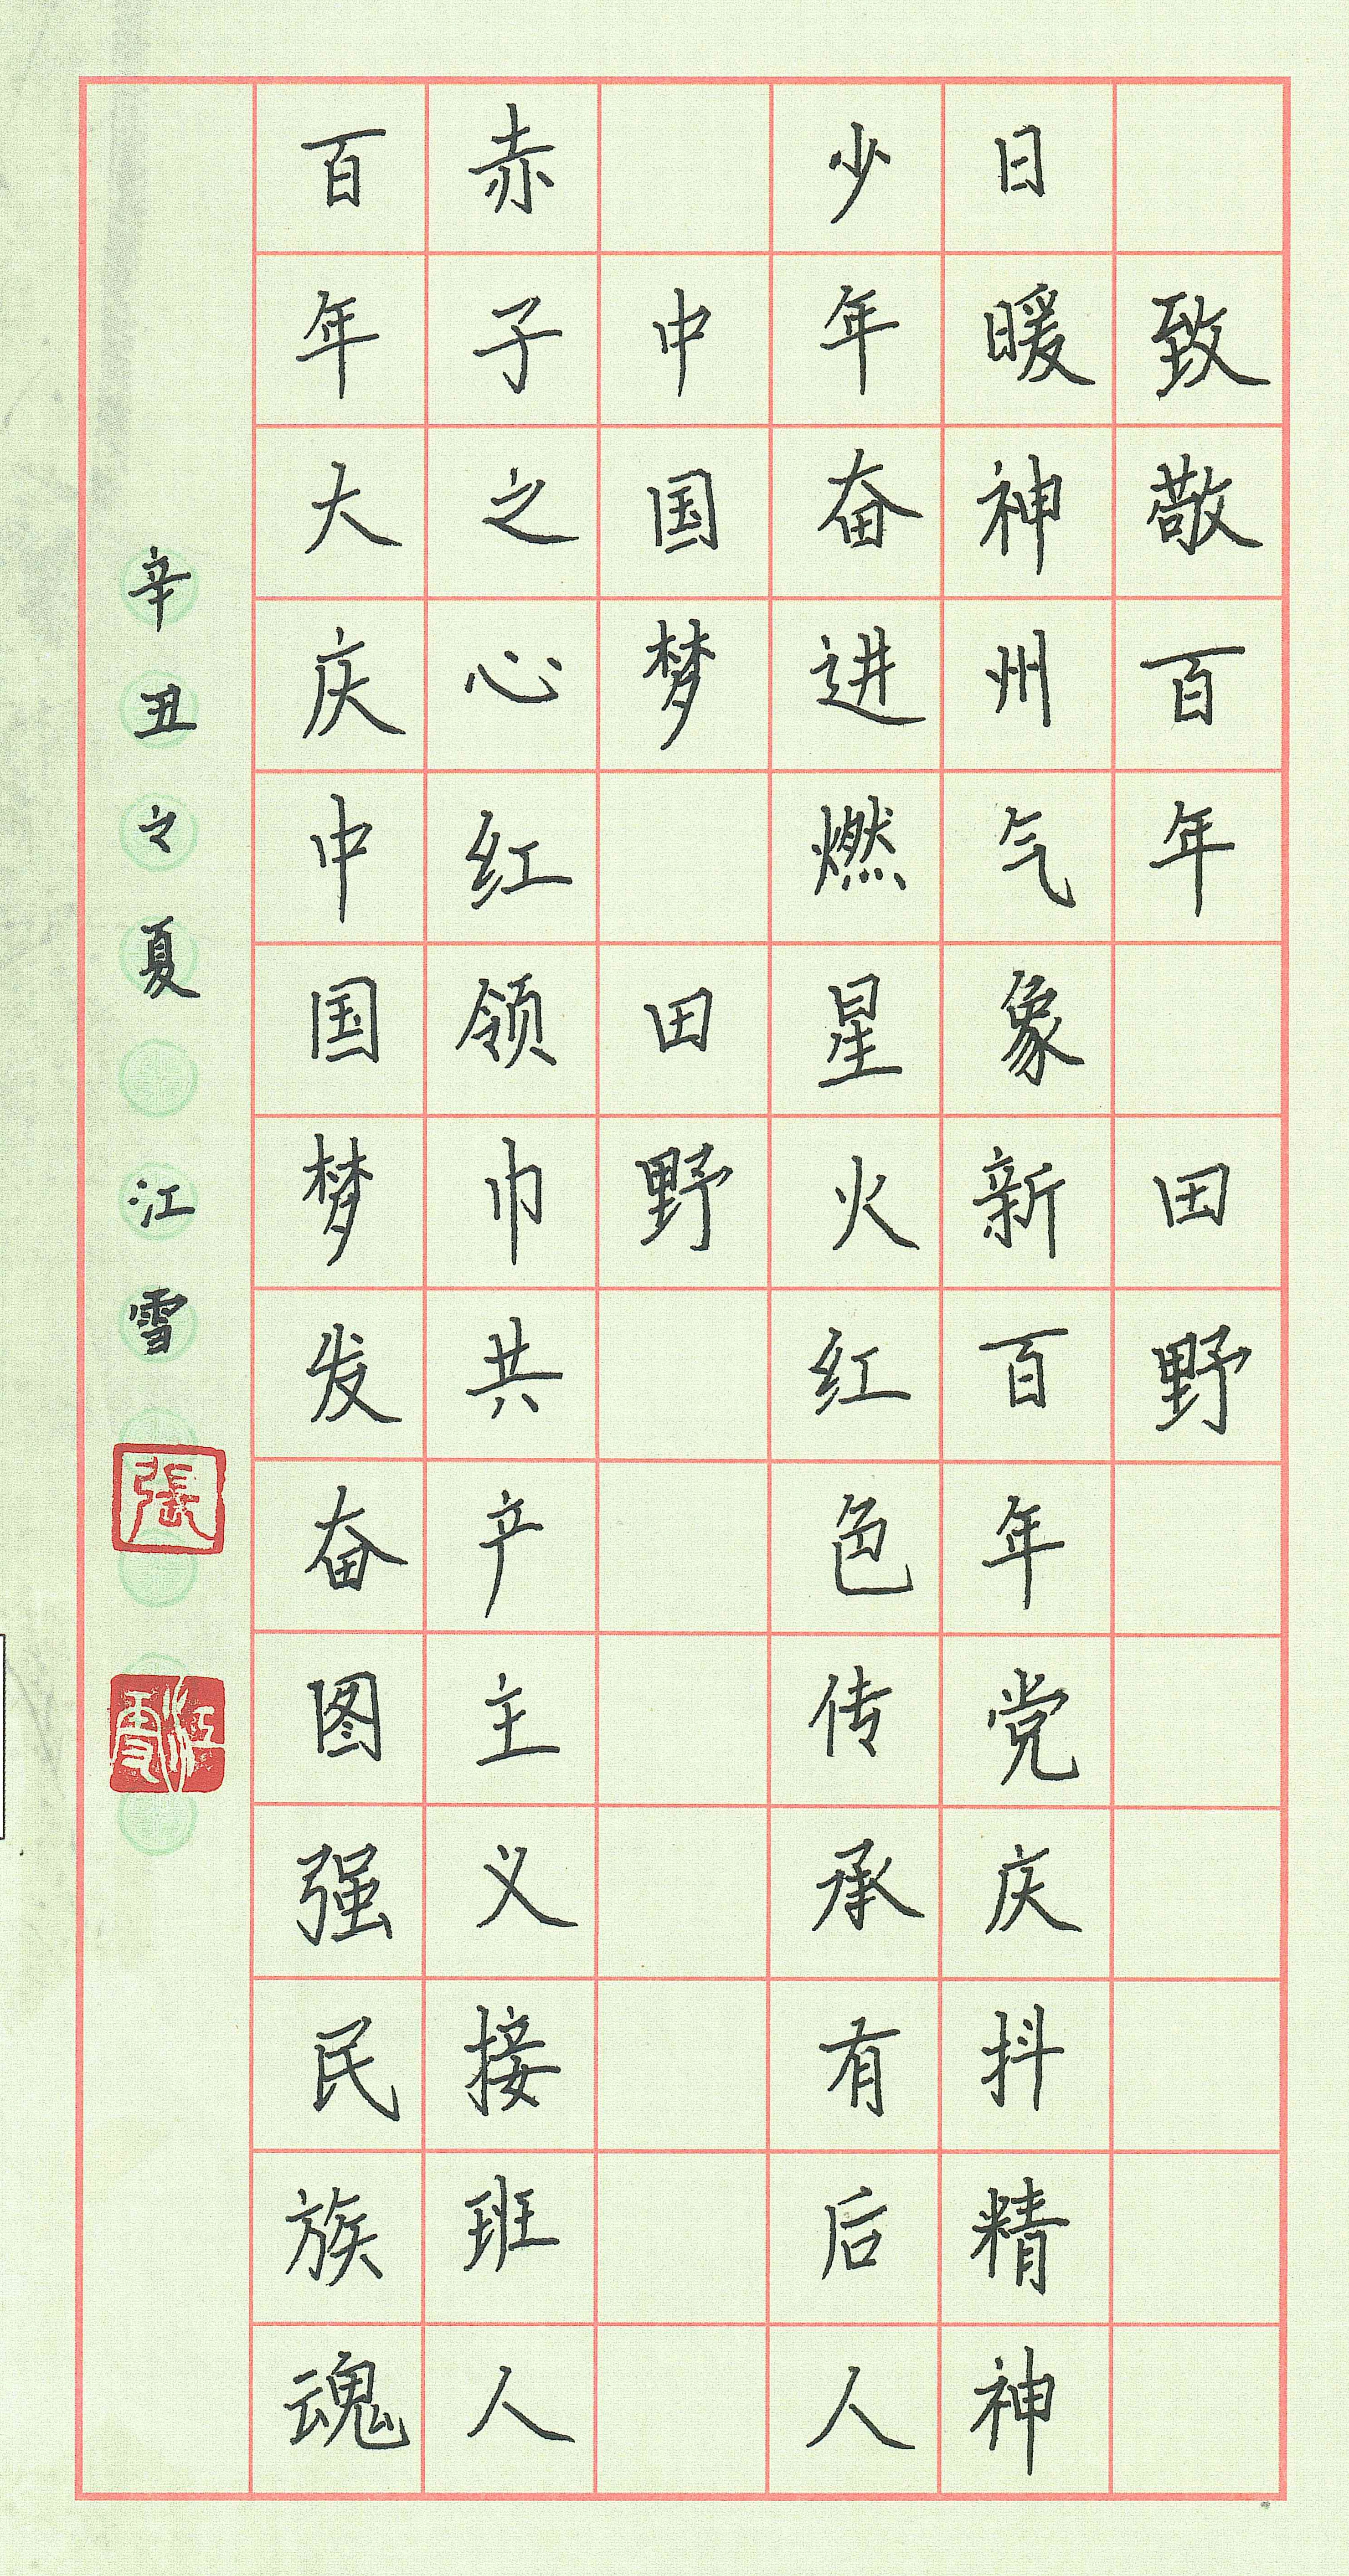 致敬百年 田野
日暖神州气象新百年党庆抖精神
少年奋进燃星火红色传承有后人
中国梦 田野
赤子之心红领巾共产主义接班人
百年大庆中国梦发奋图强民族魂
辛丑之夏 江雪
張
江雪